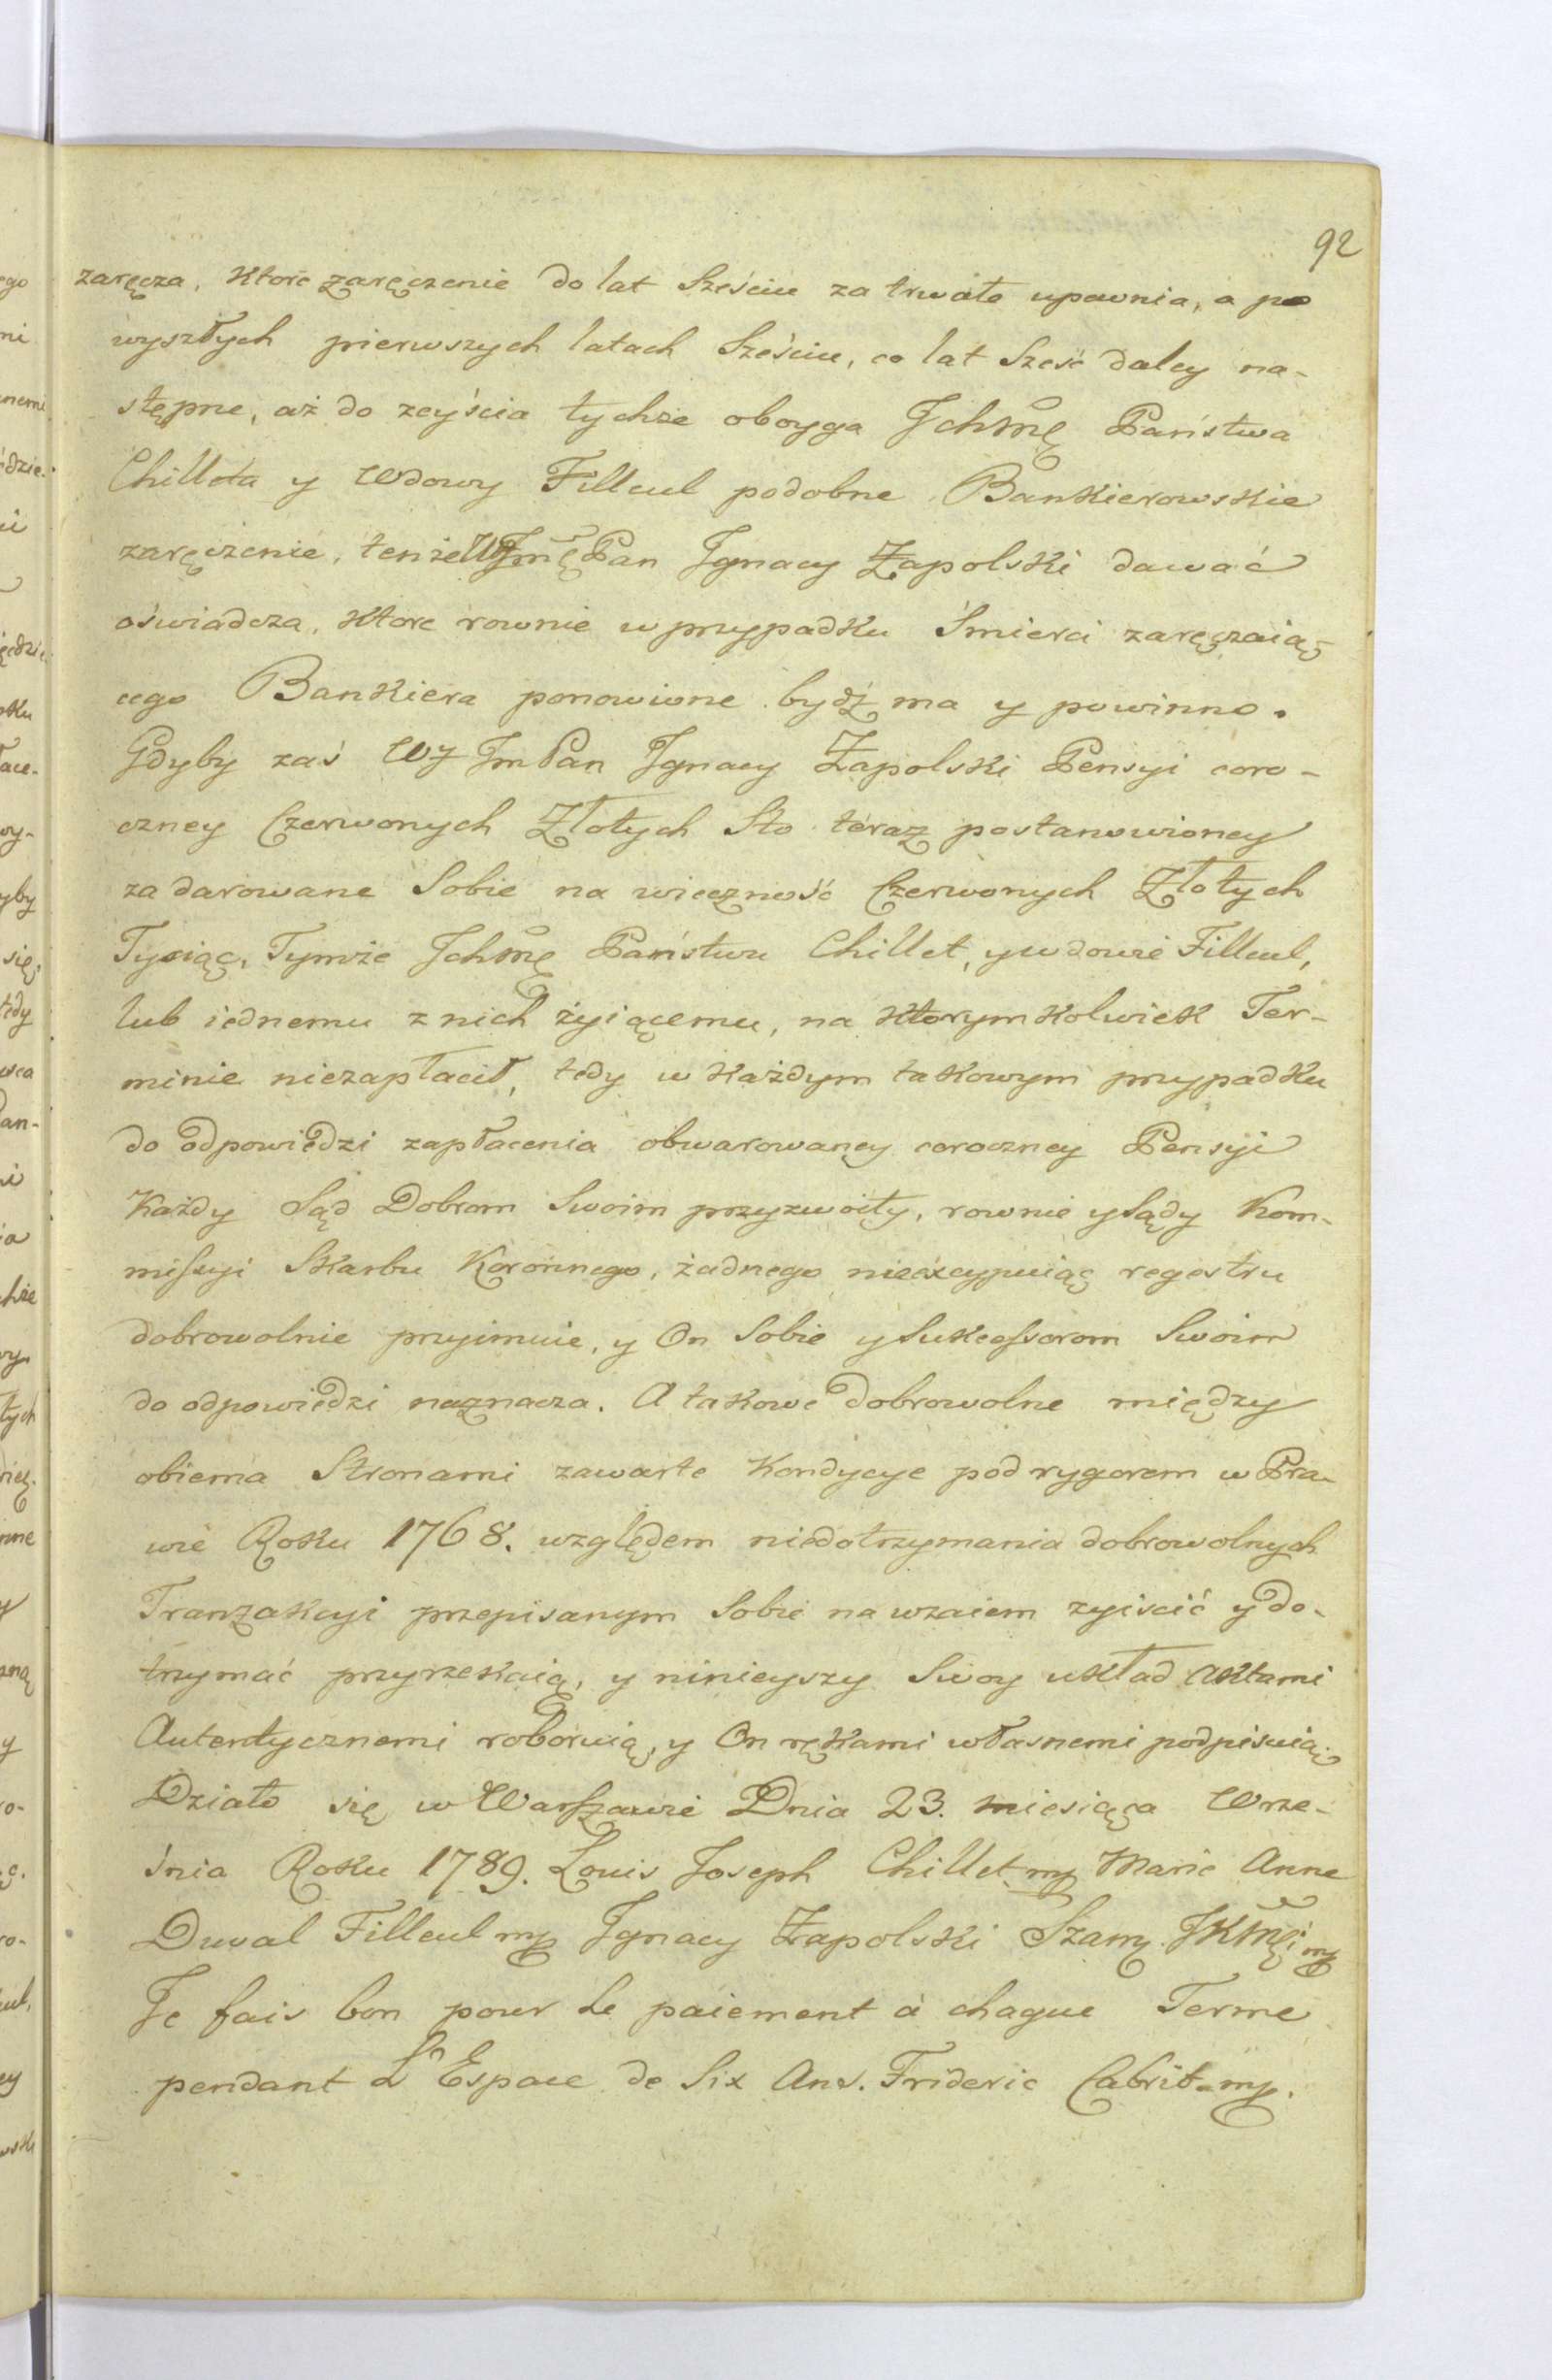 92
zaręcza, ktore zaręczenie do lat Sześciu za trwałe upewnia, a po
wyszłych pierwszych latach Sześciu, co lat Sześć daley na-
stępne, aż do zeyścia tychże oboyga Jchmę Państwa
Chilleta y Wdowy Filleul podobne Bankierowskie
zaręczenie, tenże WJmę Pan Jgnacy Zapolski dawać
oświadcza, ktore rownie w przypadku Śmierci zaręczaią-
cego Bankiera ponowione bydź ma y powinno.
Gdyby zaś WJ JmPan Jgnacy Zapolski Pensyi coro-
czney Czerwonych Złotych Sto teraz postanowioney
za darowane Sobie na wieczność Czerwonych Złotych
Tysiąc, Tymże Jchmę Państwu Chillet, y wdowie Filleul,
lub iednemu z nich żyiącemu, na ktorymkolwiek Ter-
minie niezapłacił, tedy w każdym takowym przypadku
do odpowiedzi zapłacenia obwarowaney coroczney Pensyi
Każdy Sąd Dobrom Swoim przyzwoity, rownie y Sądy Kom-
missyi Skarbu Koronnego, żadnego nieexcypuiąc regestru
dobrowolnie przyimuie, y On Sobie y Sukcessorom Swoim
do odpowiedzi naznacza. A takowe dobrowolne między
obiema Stronami zawarte Kondycye pod rygorem w Pra-
wie Roku 1768. względem niedotrzymania dobrowolnych
Tranzakcyi przepisanym Sobie nawzaiem zyiscić y do-
trzymać przyrzekaią, y ninieyszy Swoy układ Aktami
Autentycznemi roboruią, y On rękami własnemi podpisuią.
Działo się w Warszawie Dnia 23. miesiąca Wrze-
śnia Roku 1789. Louis Joseph Chillet mp Marie Anne
Duval Filleul mp Jgnacy Zapolski Szam. JKmęi mp
Je fais bon pour le paiement à chaque Terme
pendant L'Espace de Six Ans. Frideric Cabrit mp.